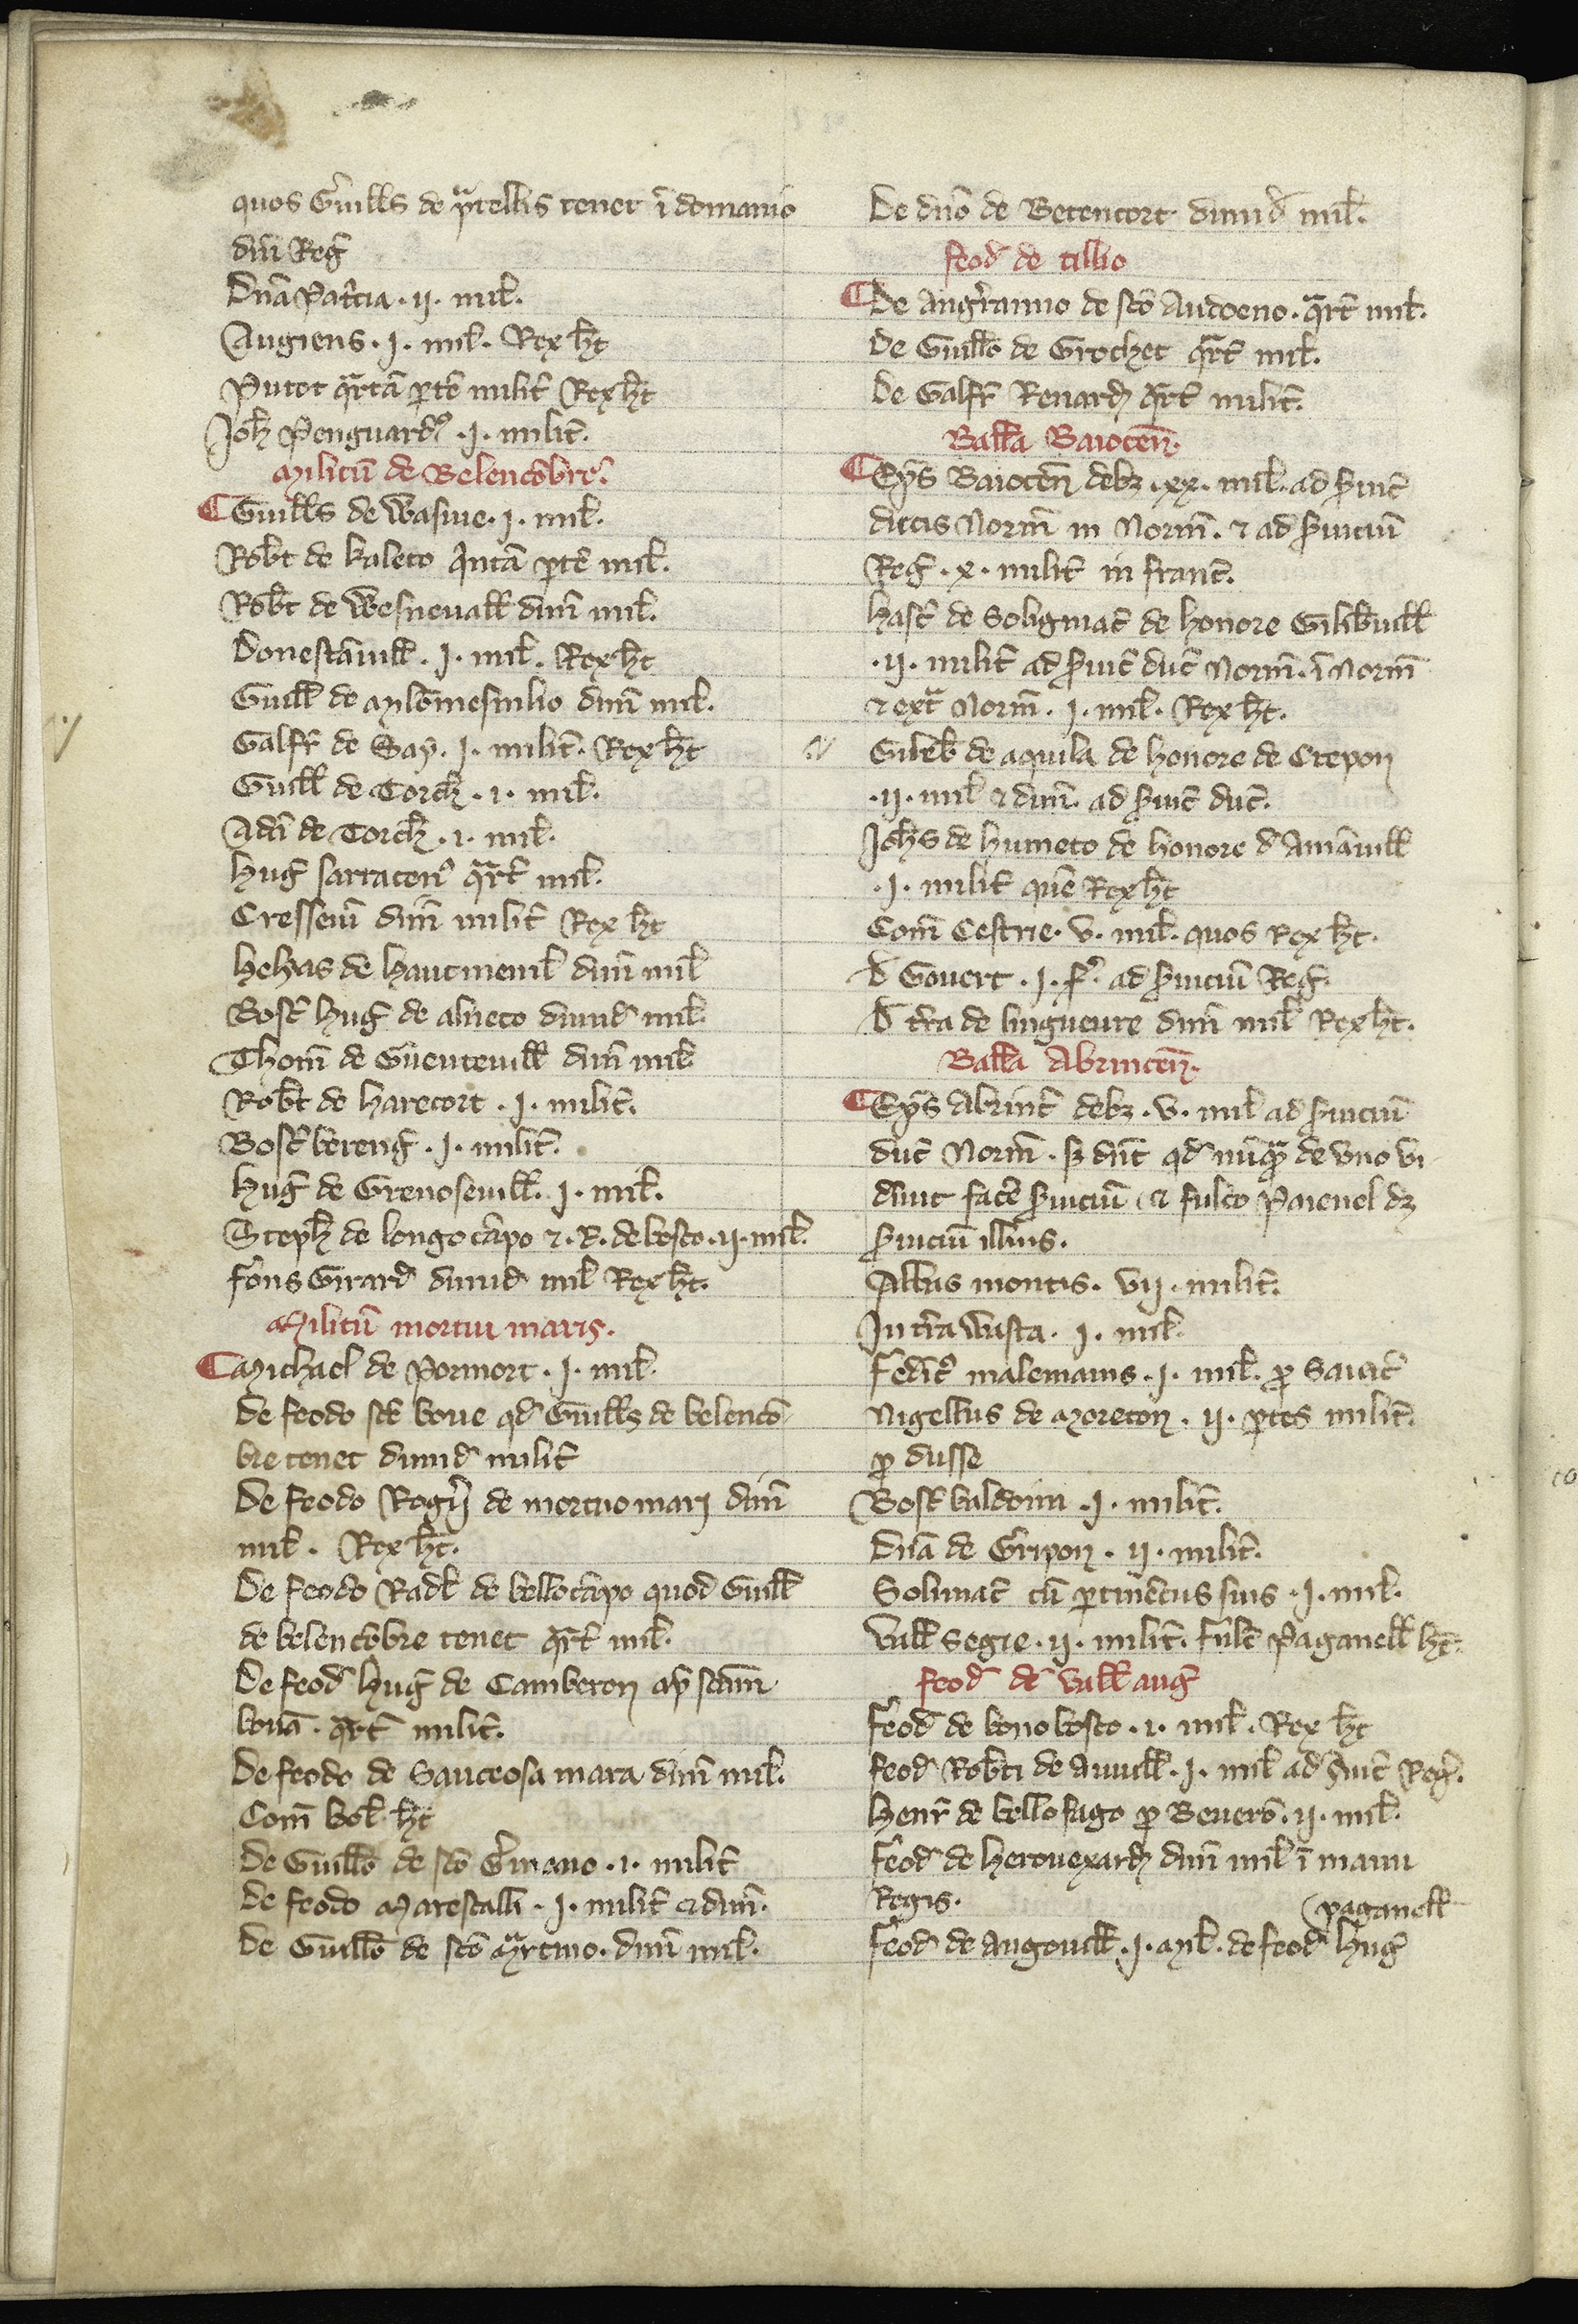 quos Guill̃s de pͣtellis tenet ĩ domanio
dñi Reg̃
Dña Pat̃cia . ij . mil̃.
Augiens . j . mil̃ . Rex hꝫ̃
Putot qͣrtã ꝑtẽ milit̃ Rex hꝫ̃
Joh̃ Penguardꝰ . j . milit̃.
Militũ de Belencõbrẽ.
Guill̃s de Wasiue . j . mil̃.
Rob̃t de kaleto qintã ꝑtẽ mil̃.
Rob̃t de Wesneuall̃ dim̃ mil̃.
Donestãuill̃ . j . mil̃ . Rex hꝫ̃
Guill̃ de Mylõmesnilio dim̃ mil̃.
Galfr̃ de Say . j . milit̃ . Rex hꝫ̃
Guill̃ de Torch̃ . i . mil̃.
Adã de Torch̃ . i . mil̃.
hug̃ sarracenꝰ qͣrt̃ mil̃.
Cresseiũ dim̃ milit̃ Rex hꝫ̃
helyas de hautmenil̃ dim̃ mil̃
Bosc̃ hug̃ de alneto dimid̃ mil̃
Thom̃ de Guenteuill̃ dim̃ mil̃
Rob̃t de harecort . j . milit̃.
Bosc̃ bereng̃ . j . milit̃.
hug̃ de Grenoseuill̃ . j . mil̃.
Steph̃ de longo cãpo ⁊ . R . de bosco . ij . mil̃.
fons Girard̃ dimid̃ mil̃ Rex hꝫ̃.
Militũ mortui maris.
Michael de Pormort . j . mil̃.
De feodo sc̃e boue qd̃ Guill̃s de belencõ-
bre tenet dimid̃ milit̃
De feodo Rog̃ij de mortuo mari dim̃
mil̃ . Rex hꝫ̃.
De feodo Rad̃l de bello cãpo quod Guill̃
de belencõbre tenet qͣrt̃ mil̃.
De feod̃ hug̃ de Camberon ap̃ sc̃am
bouã . qͣrt̃ milit̃.
De feodo de Sauceosa mara dim̃ mil̃.
Com̃ bol̃ hꝫ̃
De Guill̃o de sc̃o Germano . i . milit̃
De feodo Marescalli . j . milit̃ ⁊ dim̃.
De Guill̃o de sc̃o Mͣrtino . dim̃ mil̃.
De dño de Betencort dimid̃ mil̃.
feod̃ de tillio
De angr̃anno de sc̃o Audoeno . qͣrt̃ mil̃.
De Guill̃o de Grochet qͣrt̃ mil̃.
De Galfr̃ Renard̃ qͣrt̃ milit̃.
Ball̃a Baiocen̄.
Ep̃s Baiocen̄ debꝫ . xx . mil̃ . ad s̃uic̃
ducis Norm̃ in Norm̃ . ⁊ ad s̃uiciũ
Reg̃ . x . milit̃ in franc̃.
hasc̃ de Soligniac̃ de honore Gilib̃uill̃
. ij . milit̃ ad s̃uic̃ duc̃ Norm̃ . ĩ Norm̃
⁊ extͣ Norm̃ . j . mil̃ . Rex hꝫ̃.
Gileb̃ de aquila de honore de Crepon
. ij . mil̃ ⁊ dim̃ . ad s̃uic̃ duc̃.
Joh̃s de humeto de honore d̃ Amãuill̃
. j . milit̃ quẽ Rex hꝫ̃
Com̃ Cestrie . v . mil̃ . quos Rex hꝫ̃.
D̃ Gouert . j . f̃ . ad s̃uiciũ Reg̃.
D̃ t̃ra de lingueure dim̃ mil̃ Rex hꝫ̃.
Ball̃a Abrincen̄.
Ep̃s Abrinc̃ debꝫ . v . mil̃ ad s̃uiciũ
duc̃ Norm̃ . sꝫ dñt qd̃ nũqͣ de uno vi-
d̃unt fac̃e s̃uiciũ ⁊ fulco Paienel dꝫ
s̃uiciũ illius.
Abbas montis . vij . milit̃.
In t̃ra Wasta . j . mil̃.
Fed̃icꝰ malemains . j . mil̃ . ꝓ Saucic̃
Nigellus de Moreton . ij . ꝑtes milit̃.
ꝓ dusse
Bosc̃ baldoini . j . milit̃.
Dña de Gripon . ij . milit̃.
Soliniac̃ cũ ꝑtinẽciis suis . j . mil̃.
Vall̃ Segie . ij . milit̃ . Fulc̃ Paganell̃ hꝫ̃.
feod̃ de vall̃ aug̃
Feod̃ de bono bosco . i . mil̃ . Rex hꝫ̃
feod̃ Rob̃ti de auuill̃ . j . mil̃ ad s̃uic̃ Reg̃.
henr̃ de bello fago ꝓ Beuerõ . ij . mil̃.
Feod̃ de herouexard̃ dim̃ mil̃ ĩ manu
Regis.
paganell̃
Feod̃ de augouill̃ . j . Myl̃ . de feod̃ hug̃